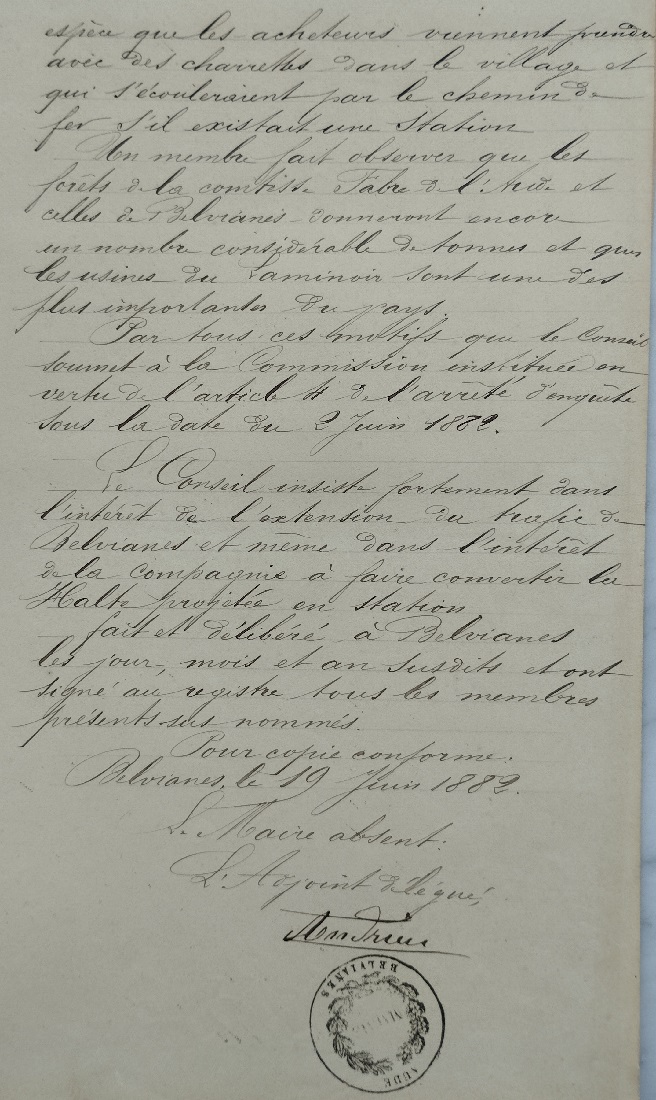 espèce que les acheteurs viennent prendre
avec des charrettes dans le village et
qui s'écouleraient par le chemin de
fer s'il existait une station
Un membre fait observer que les
forêts de la comtesse Fabre de l'Aude et
celles de Belvianes donneront encore
un nombre considérable de tonnes et que
les usines du Laminoir sont une des
plus importantes du pays.
Par tous ces motifs que le Conseil
soumet à la Commission instituée en
vertu de l'article 4 de l'arrêté d'enquête
sous la date du 2 Juin 1882.
Le Conseil insiste fortement dans
l'intérêt de l'extension du trafic de
Belvianes et même dans l'intérêt
de la compagnie à faire convertir la
Halte projetée en station.
fait et délibéré à Belvianes
les jour, mois et an susdits et ont
signé au registre tous les membres
présents sus nommés.
Pour copie conforme.
Belvianes, le 19 Juin 1882.
Le Maire absent.
L'Adjoint délégué,
Andrieu
BELVIANES
MAIRIE
AUDE